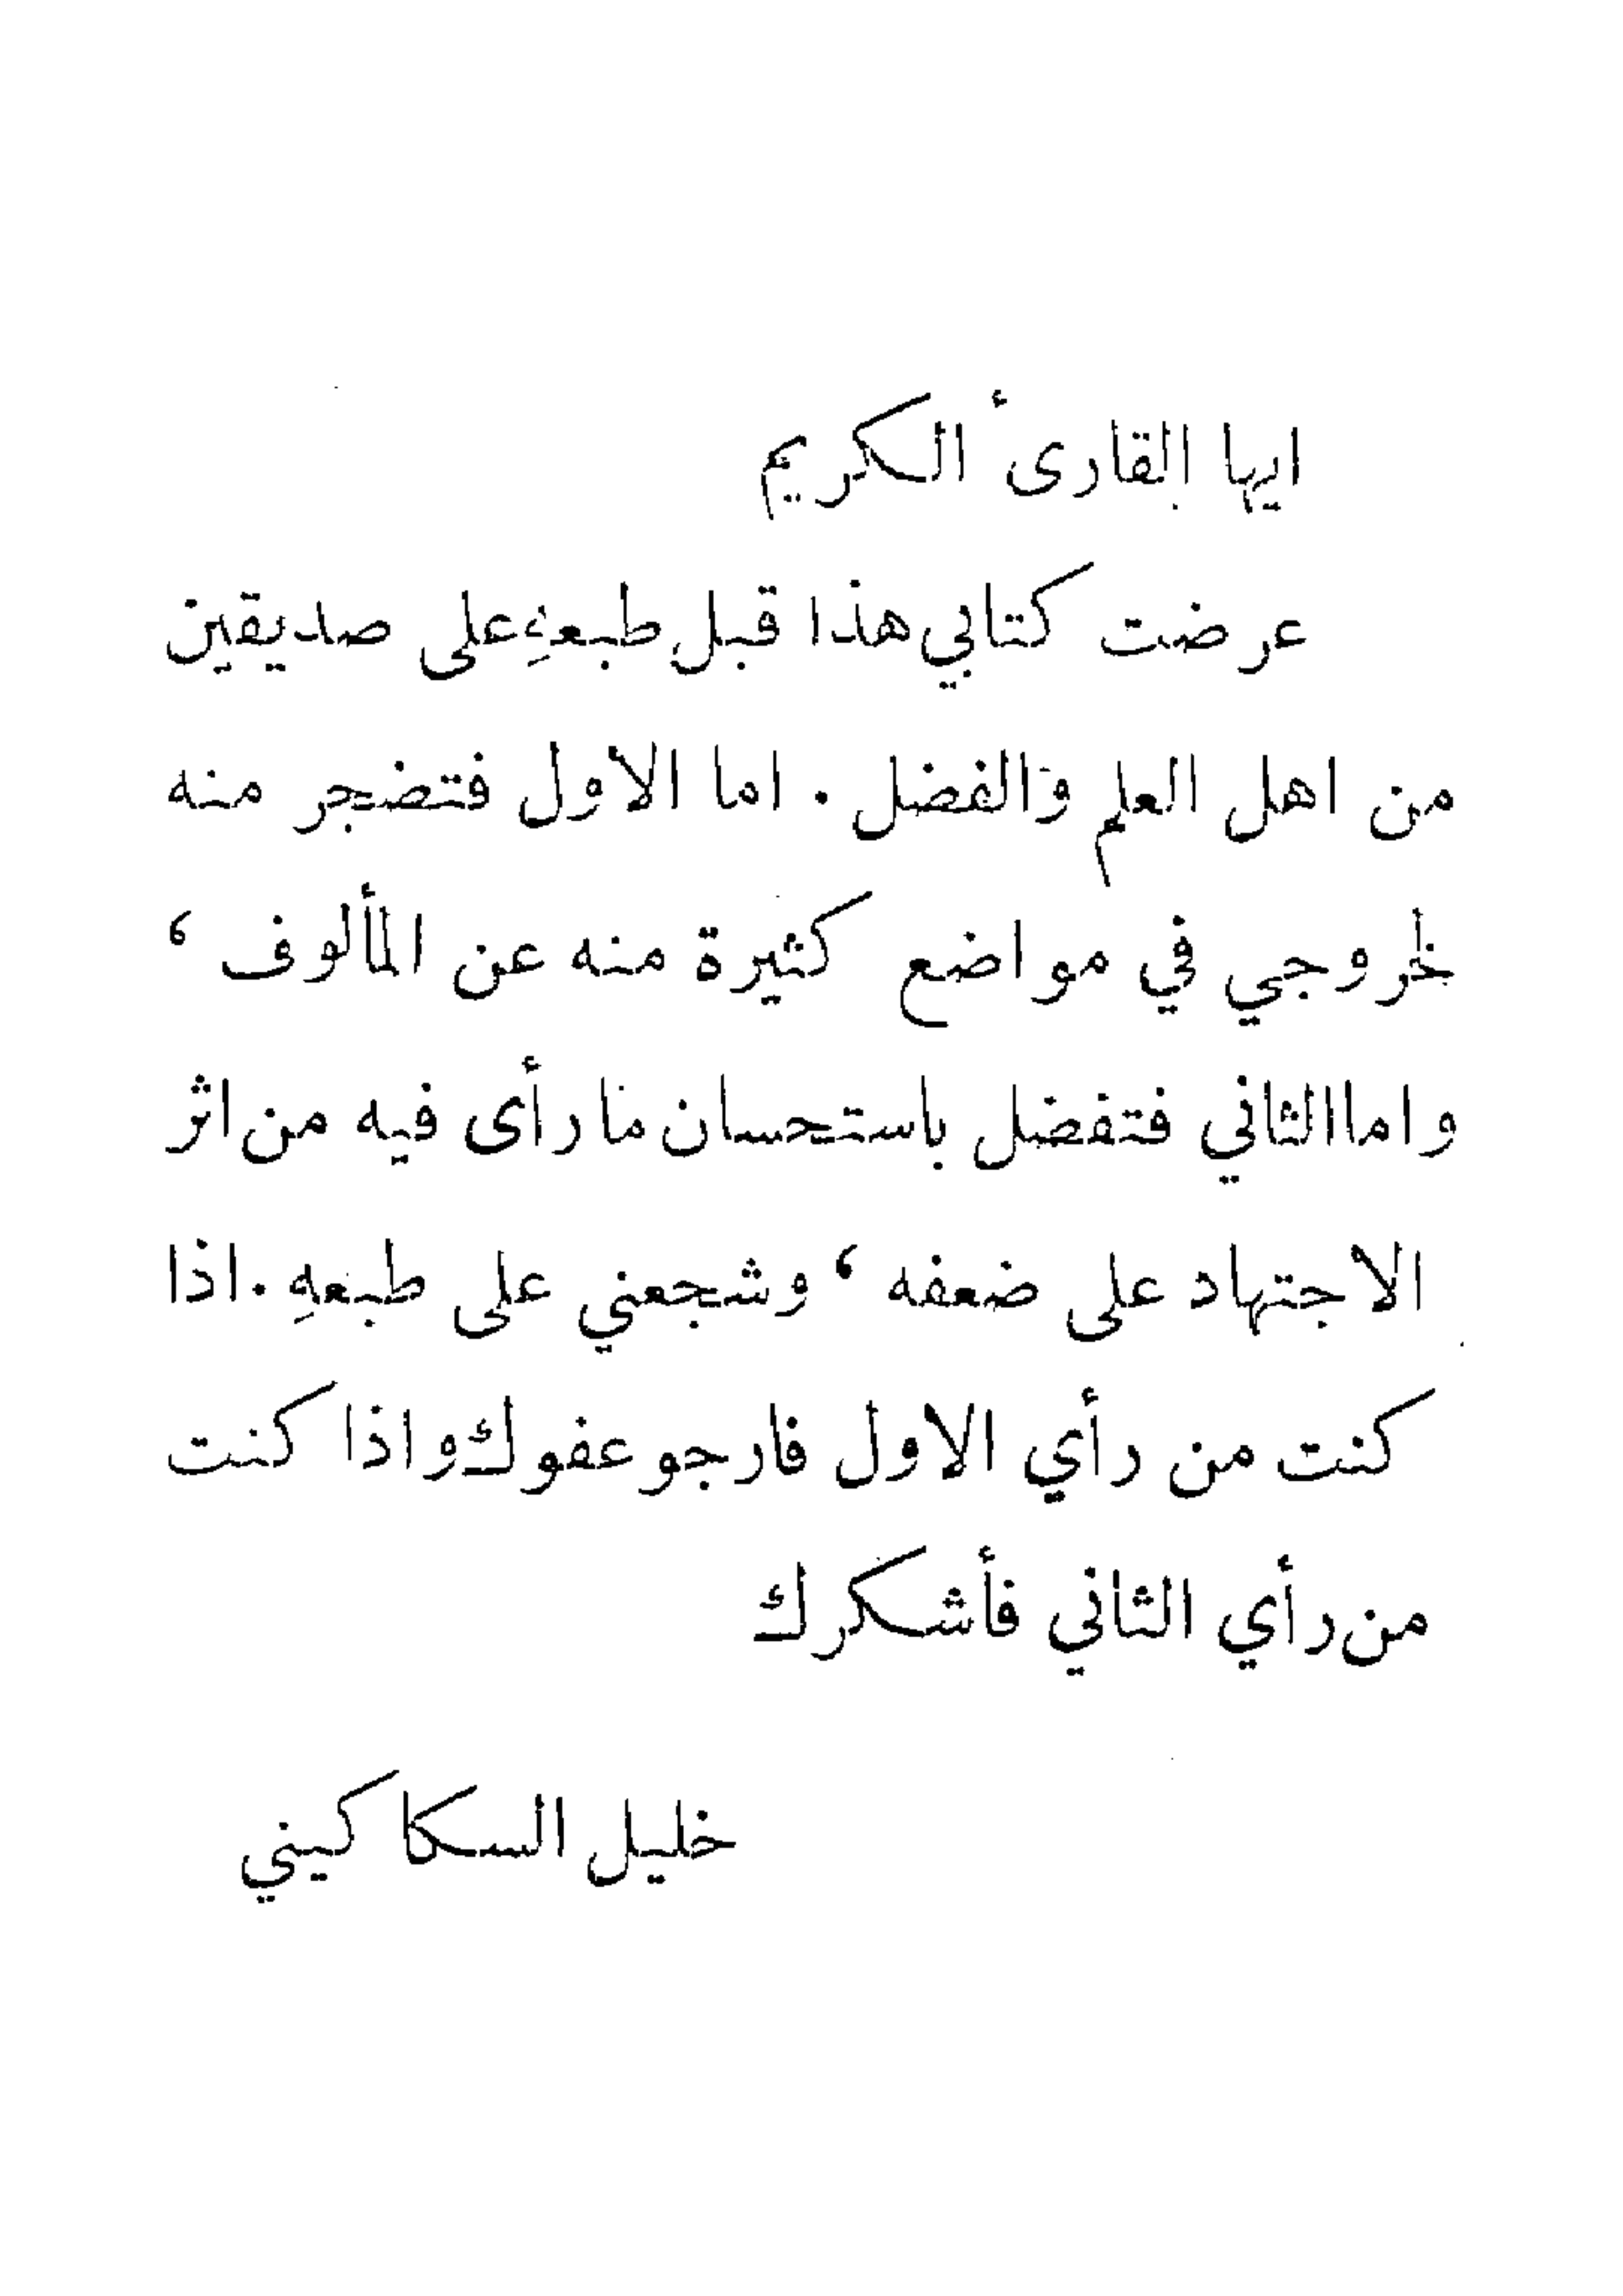 ايها القارىء الكريم
عرضت كتابي هذا قبل طبعهِ على صديقين
من اهل العلم والفضل . اما الاول فتضجر منه
لخروجي في مواضع كثيرة منه عن المألوف ،
واما الثاني فتفضل باستحسان ما رأى فيه من اثر
الاجتهاد على ضعفه ، وشجعني على طبعهِ . اذا
كنت من رأي الاول فارجو عفوك واذا كنت
من رأي الثاني فأشكرك
خليل السكاكيني